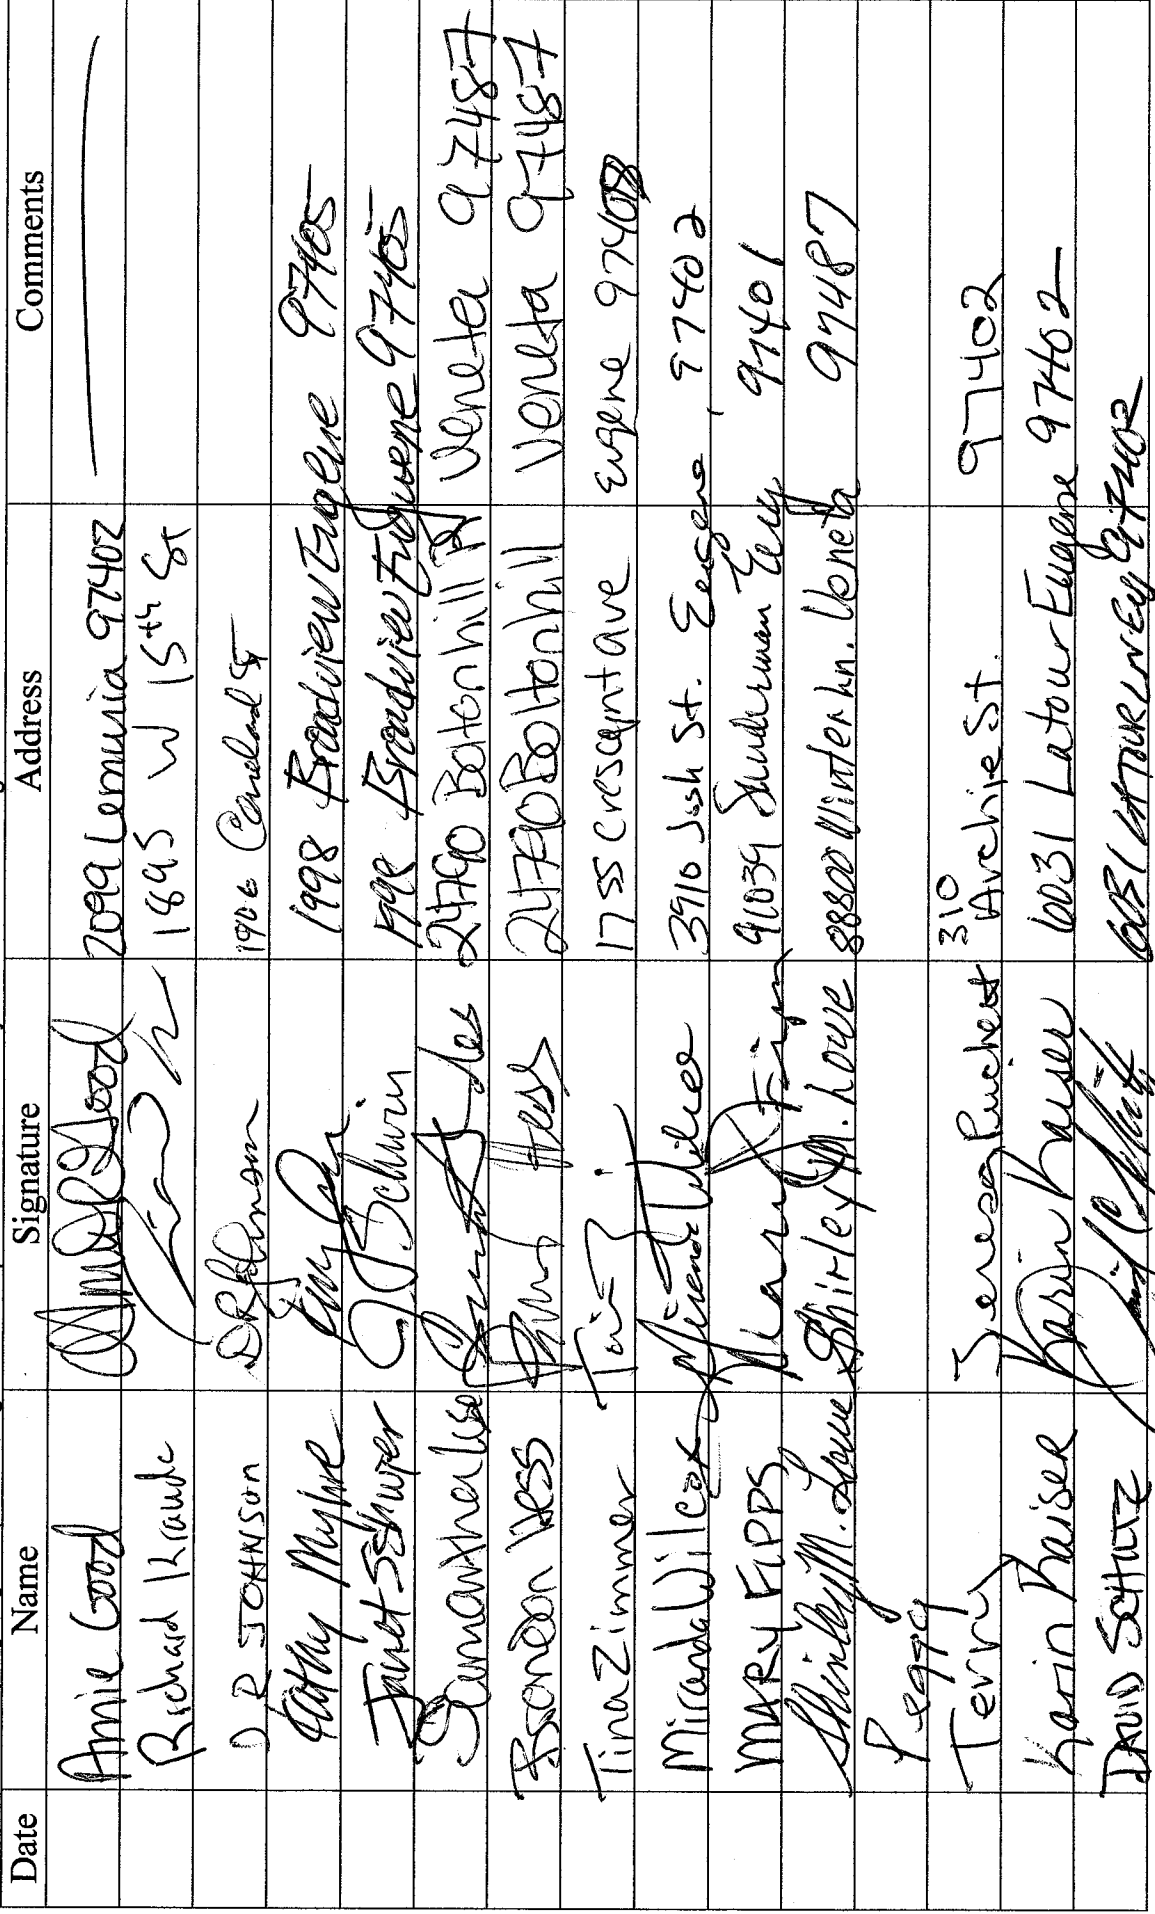 Date Name Signature Address Comments
Annie Good Annie R Good 2099 Lemuria 97402
Richard Kraude 1895 W 15th St
D R JOHNSON D R Johnson 1906 St
Kathy 1998 Broadview Eugene 97405
Janet Schwin 1998 Broadview Eugene 97405
Samantha 24790 Boltonhill Rd Veneta 97487
Hess Hess 24790 Boltonhill Veneta 97487
Tina Zimmer Tina Z 1755 Crescent ave Eugene 97408
Miranda Wilcox Miranda Wilcox 3910 Josh St. Eugene, 97402
MARY FIPPS Mary 91039 97401
Shirley M. Lowe Shirley M. Lowe 88800 Winter Ln. Veneta 97487
Peggy
Terry Teresa Puckett 310 Archie St. 97402
Karin Kaiser Karin Kaiser 6031 Latour Eugene 97402
DAVID SCHUTZ 6031 LATOUR LN 97402